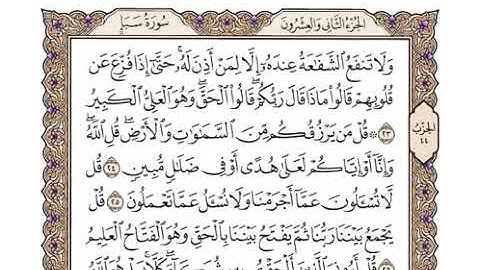 الجزء الثاني والعشرون
سورة سبإ
وَلَا تَنفَعُ ٱلشَّفَٰعَةُ عِندَهُۥٓ إِلَّا لِمَنْ أَذِنَ لَهُۥ ۚ حَتَّىٰٓ إِذَا فُزِّعَ عَن
قُلُوبِهِمْ قَالُوا۟ مَاذَا قَالَ رَبُّكُمْ ۖ قَالُوا۟ ٱلْحَقَّ ۖ وَهُوَ ٱلْعَلِىُّ ٱلْكَبِيرُ
٢٣ ۞ قُلْ مَن يَرْزُقُكُم مِّنَ ٱلسَّمَٰوَٰتِ وَٱلْأَرْضِ ۖ قُلِ ٱللَّهُ ۖ
وَإِنَّآ أَوْ إِيَّاكُمْ لَعَلَىٰ هُدًى أَوْ فِى ضَلَٰلٍ مُّبِينٍ ٢٤ قُل
لَّا تُسْـَٔلُونَ عَمَّآ أَجْرَمْنَا وَلَا نُسْـَٔلُ عَمَّا تَعْمَلُونَ ٢٥ قُلْ
يَجْمَعُ بَيْنَنَا رَبُّنَا ثُمَّ يَفْتَحُ بَيْنَنَا بِٱلْحَقِّ وَهُوَ ٱلْفَتَّاحُ ٱلْعَلِيمُ
الحزب
٤٤